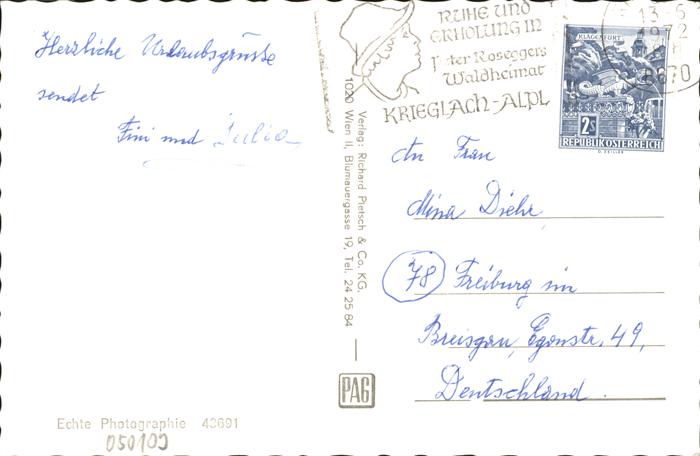 Herzliche Urlaubsgrüsse
sendet
Fini und Julia
Echte Photographie 43691
050109
Verlag: Richard Pietsch & Co. KG.
1020 Wien II, Blumauergasse 19, Tel. 24 25 84
PAG
RUHE UND
ERHOLUNG IN
Peter Roseggers
Waldheimat
KRIEGLACH-ALPL
13. 6
1972
8670
KLAGENFURT
2S
REPUBLIK ÖSTERREICH
An Frau
Mina Diehr
78 Freiburg im
Breisgau, Egonstr. 49,
Deutschland.